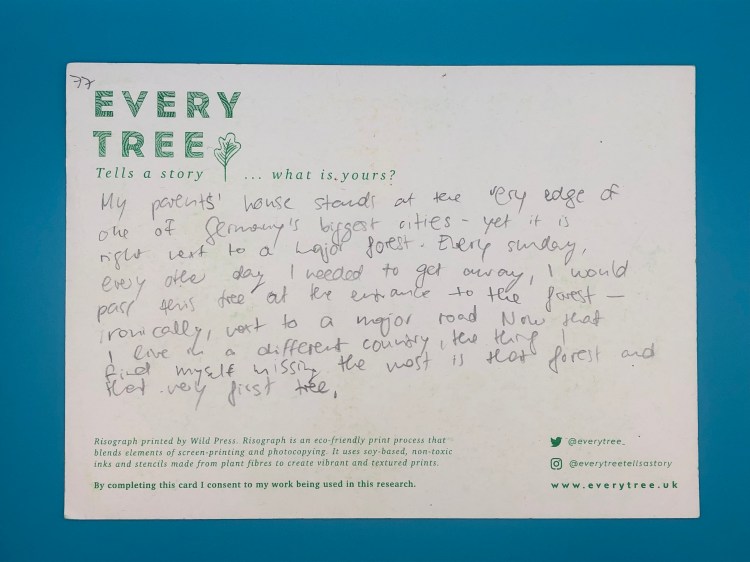 77
EVERY
TREE
Tells a story ... what is yours?
My parents' house stands at the very edge of
one of Germany's biggest cities - yet it is
right next to a major forest. Every sunday,
every other day I needed to get away, I would
pass this tree at the entrance to the forest –
ironically, next to a major road Now that
I live in a different country, the thing I
find myself missing the most is that forest and
that very first tree.
Risograph printed by Wild Press. Risograph is an eco-friendly print process that
blends elements of screen-printing and photocopying. It uses soy-based, non-toxic
inks and stencils made from plant fibres to create vibrant and textured prints.
By completing this card I consent to my work being used in this research.
@everytree_
@everytreetellsastory
www.everytree.uk